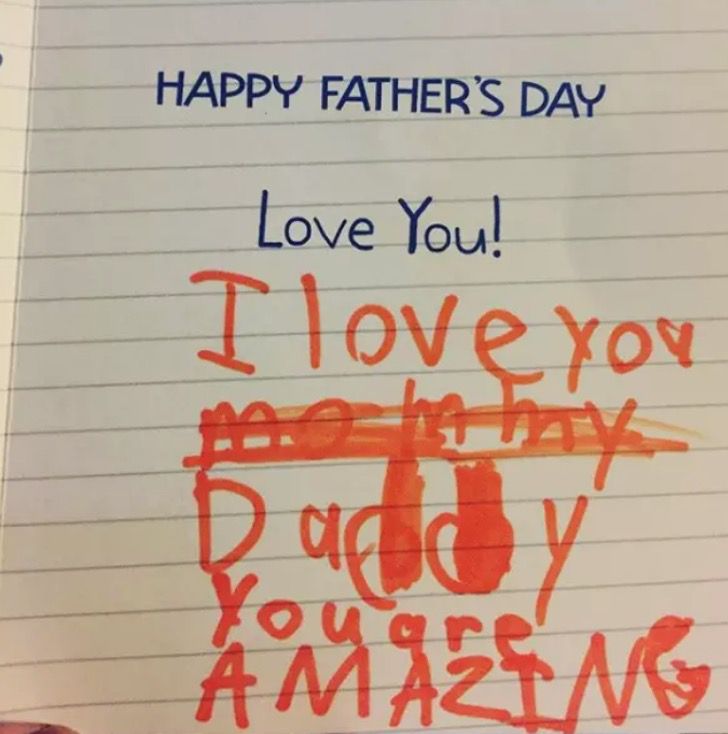 HAPPY FATHER'S DAY
Love You!
I love you
mommy
Daddy
You are
AMAZING